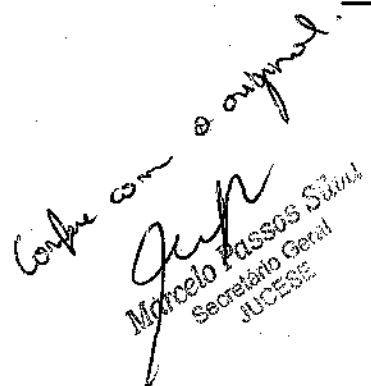 Confere com o original.
Marcelo Passos Silva
Secretário Geral
JUCESE